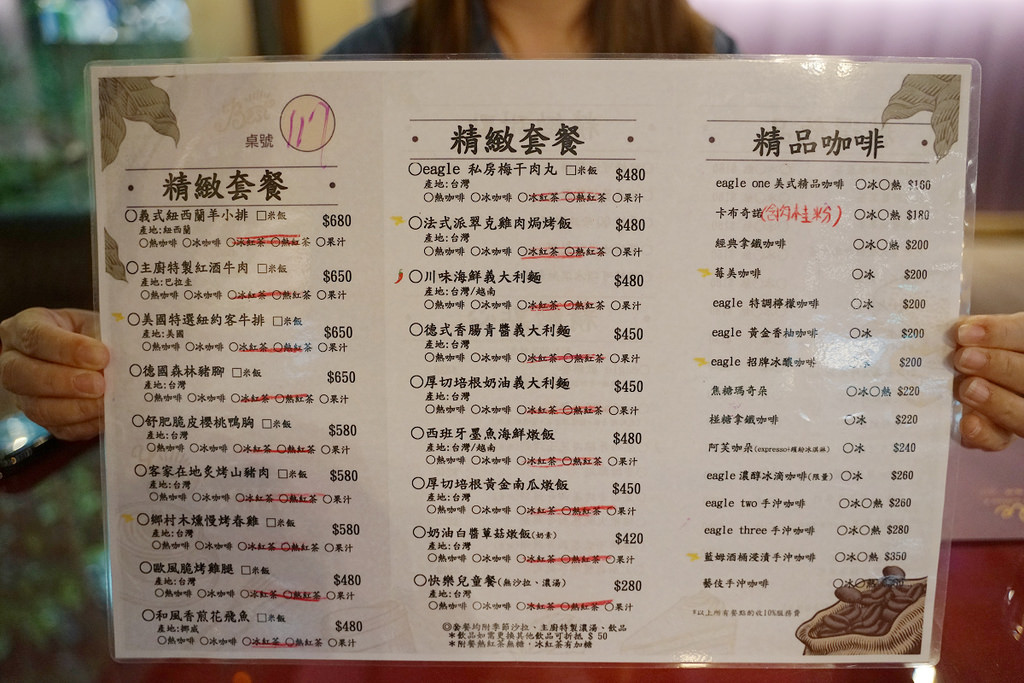 桌號 117
精緻套餐
○義式紐西蘭羊小排 □米飯 $680
產地:紐西蘭
○熱咖啡 ○冰咖啡 ○冰紅茶 ○熱紅茶 ○果汁
○主廚特製紅酒牛肉 □米飯 $650
產地:巴拉圭
○熱咖啡 ○冰咖啡 ○冰紅茶 ○熱紅茶 ○果汁
○美國特選紐約客牛排 □米飯 $650
產地:美國
○熱咖啡 ○冰咖啡 ○冰紅茶 ○熱紅茶 ○果汁
○德國森林豬腳 □米飯 $650
產地:台灣
○熱咖啡 ○冰咖啡 ○冰紅茶 ○熱紅茶 ○果汁
○舒肥脆皮櫻桃鴨胸 □米飯 $580
產地:台灣
○熱咖啡 ○冰咖啡 ○冰紅茶 ○熱紅茶 ○果汁
○客家在地炙烤山豬肉 □米飯 $580
產地:台灣
○熱咖啡 ○冰咖啡 ○冰紅茶 ○熱紅茶 ○果汁
○鄉村木燻慢烤春雞 □米飯 $580
產地:台灣
○熱咖啡 ○冰咖啡 ○冰紅茶 ○熱紅茶 ○果汁
○歐風脆烤雞腿 □米飯 $480
產地:台灣
○熱咖啡 ○冰咖啡 ○冰紅茶 ○熱紅茶 ○果汁
○和風香煎花飛魚 □米飯 $480
產地:挪威
○熱咖啡 ○冰咖啡 ○冰紅茶 ○熱紅茶 ○果汁
精緻套餐
○eagle 私房梅干肉丸 □米飯 $480
產地:台灣
○熱咖啡 ○冰咖啡 ○冰紅茶 ○熱紅茶 ○果汁
○法式派翠克雞肉焗烤飯 $480
產地:台灣
○熱咖啡 ○冰咖啡 ○冰紅茶 ○熱紅茶 ○果汁
○川味海鮮義大利麵 $480
產地:台灣/越南
○熱咖啡 ○冰咖啡 ○冰紅茶 ○熱紅茶 ○果汁
○德式香腸青醬義大利麵 $450
產地:台灣
○熱咖啡 ○冰咖啡 ○冰紅茶 ○熱紅茶 ○果汁
○厚切培根奶油義大利麵 $450
產地:台灣
○熱咖啡 ○冰咖啡 ○冰紅茶 ○熱紅茶 ○果汁
○西班牙墨魚海鮮燉飯 $480
產地:台灣/越南
○熱咖啡 ○冰咖啡 ○冰紅茶 ○熱紅茶 ○果汁
○厚切培根黃金南瓜燉飯 $450
產地:台灣
○熱咖啡 ○冰咖啡 ○冰紅茶 ○熱紅茶 ○果汁
○奶油白醬蕈菇燉飯(奶素) $420
產地:台灣
○熱咖啡 ○冰咖啡 ○冰紅茶 ○熱紅茶 ○果汁
○快樂兒童餐(無沙拉、濃湯) $280
產地:台灣
○熱咖啡 ○冰咖啡 ○冰紅茶 ○熱紅茶 ○果汁
◎套餐均附季節沙拉、主廚特製濃湯、飲品
*飲品如需更換其他飲品可折抵 $ 50
*附餐熱紅茶無糖,冰紅茶有加糖
精品咖啡
eagle one 美式精品咖啡 ○冰○熱 $160
卡布奇諾(含肉桂粉) ○冰○熱 $180
經典拿鐵咖啡 ○冰○熱 $200
莓美咖啡 ○冰 $200
eagle 特調檸檬咖啡 ○冰 $200
eagle 黃金香柚咖啡 ○冰 $200
eagle 招牌冰釀咖啡 ○冰 $200
焦糖瑪奇朵 ○冰○熱 $220
椪糖拿鐵咖啡 ○冰 $220
阿芙咖朵(expresso+繽紛冰淇淋) ○冰 $240
eagle 濃醇冰滴咖啡(限量) ○冰 $260
eagle two 手沖咖啡 ○冰○熱 $260
eagle three 手沖咖啡 ○冰○熱 $280
藍姆酒桶浸漬手沖咖啡 ○冰○熱 $350
藝伎手沖咖啡 ○冰○熱
*以上所有餐點酌收10%服務費